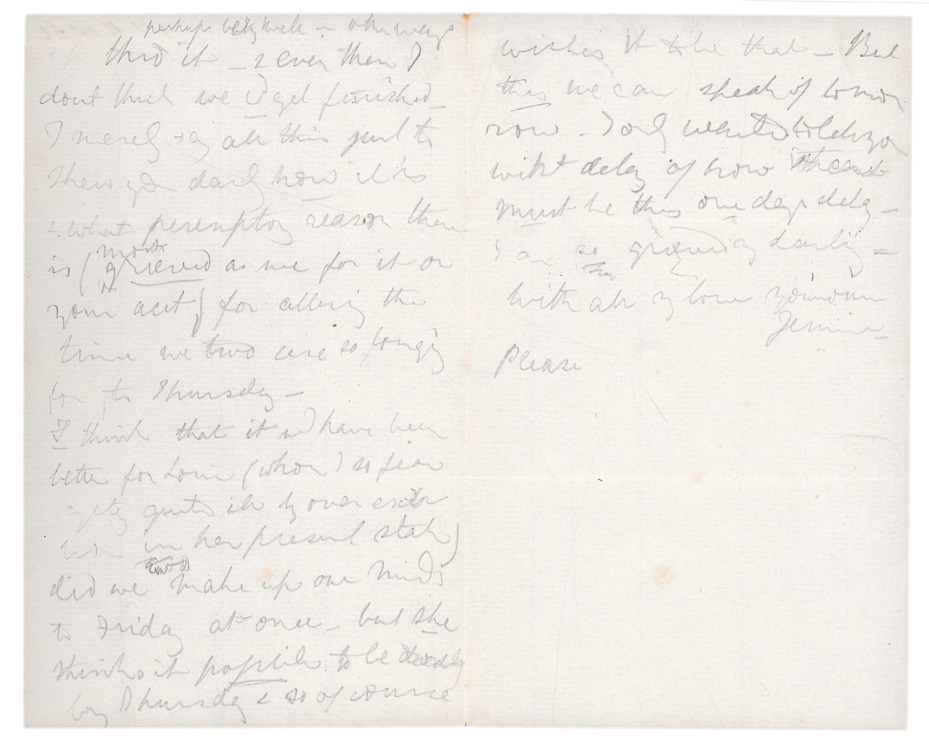 perhaps
it - & even then I
dont think we wd get finished -
I merely say all this just to
shew you darling how it is
& what peremptory reason there
is (most grieved as we for it or
your act) for altering the
time we two are so longing
for to Thursday -
I think that it wd have been
better for Louie (whom I so fear
getting quite ill by over exer
tion in her present state)
did we make up our minds
to Friday at once - but she
thinks it possible to be ready
by Thursday & so of course
wishes it to be that - But
this we can speak of tomor
row - I only wanted to let you
delay of now
must be this one days delay -
I am so grieved my darling -
With all my love your own
Jennie
Please